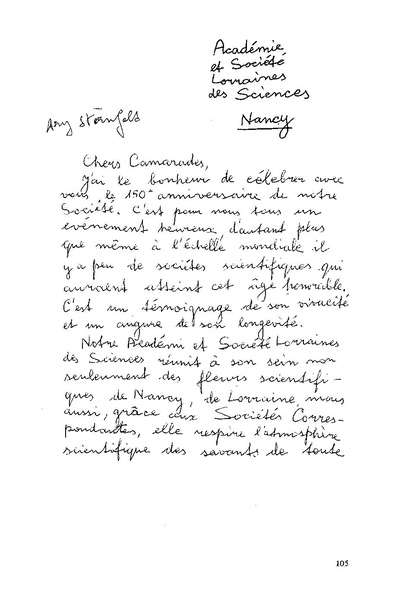 Académie
et Société
Lorraines
des Sciences
Ary Sternfeld
Nancy
Chers Camarades,
J'ai le bonheur de célébrer avec
vous le 150e anniversaire de notre
Société. C'est pour nous tous un
événement heureux, d'autant plus
que même à l'échelle mondiale il
y a peu de sociétés scientifiques qui
auraient atteint cet âge honorable.
C'est un témoignage de son vivacité
et un augure de son longévité.
Notre Académi et Société Lorraines
des Sciences réunit à son sein non
seuleument des fleurs scientifi-
ques de Nancy, de Lorraine, mais
aussi, grâce aux Sociétés Corres-
pondantes, elle respire l'atmosphère
scientifique des savants de toute
105